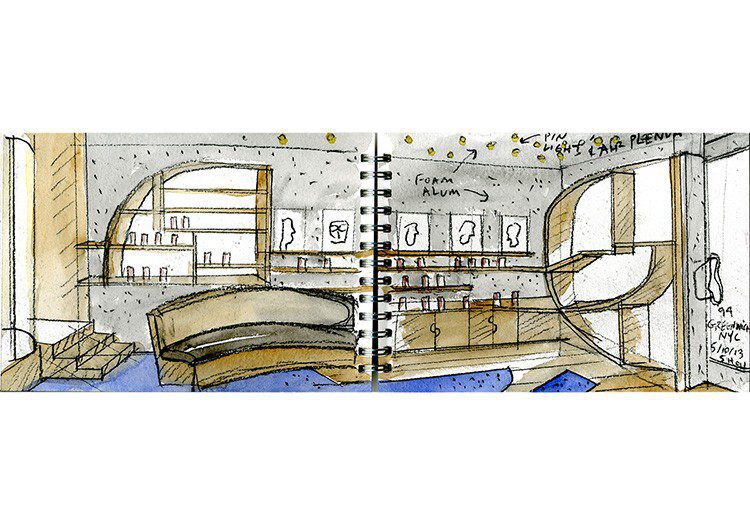 PIN
LIGHT & AIR PLENUM
FOAM
ALUM
94
GREENWICH
NYC
5/10/13
SHOU